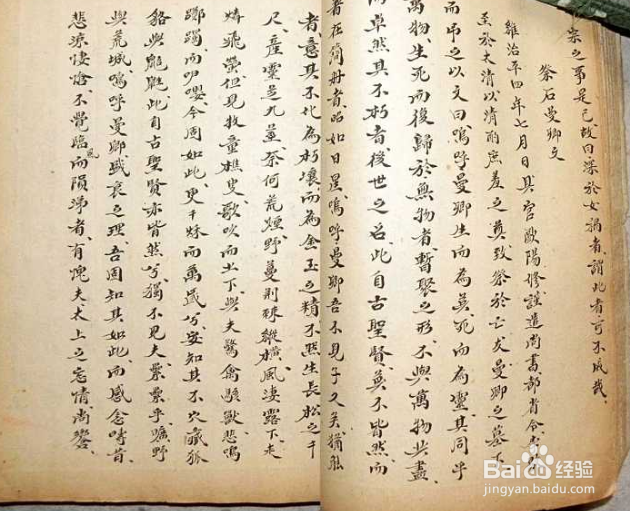 崇之事是已故曰深於女禍者謂此者可不戒哉
祭石曼卿文
維治平四年七月日具官歐陽修謹遣尚書都省令史
至於太清以清酌庶羞之奠致祭於亡友曼卿之墓下
而弔之以文曰嗚呼曼卿生而為英死而為靈其同乎
萬物生死而復歸於無物者暫聚之形不與萬物共盡
而卓然其不朽者後世之名此自古聖賢莫不皆然而
著在簡册者昭如日星嗚呼曼卿吾不見子久矣猶能
者意其不化為朽壤而為金玉之精不然生長松之千
尺產靈芝九莖奈何荒煙野蔓荆棘縱橫風淒露下走
燐飛螢但見牧童樵叟歌吹而上下與夫驚禽駭獸悲鳴
躑躅而咿嚶今固如此更千秋而萬歲兮安知其不穴藏狐
貉與鼯鼪此自古聖賢亦皆然兮獨不見夫纍纍乎曠野
與荒城嗚呼曼卿盛衰之理吾固知其如此而感念疇昔
悲涼悽愴不覺臨風而隕涕者有愧夫太上之忘情尚饗
Baidu经验
jingyan.baidu.com